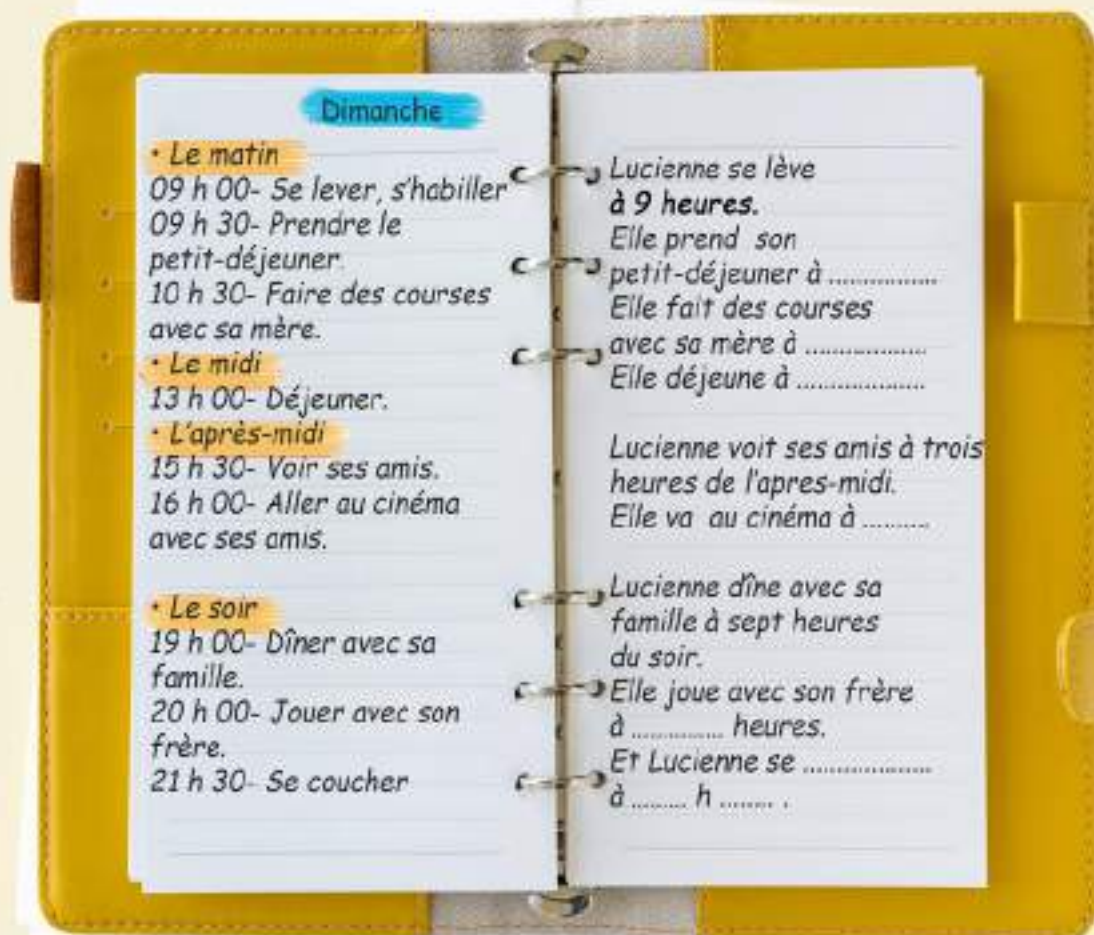 Dimanche
• Le matin
09 h 00- Se lever, s'habiller
09 h 30- Prendre le
petit-déjeuner.
10 h 30- Faire des courses
avec sa mère.
• Le midi
13 h 00- Déjeuner.
• L'après-midi
15 h 30- Voir ses amis.
16 h 00- Aller au cinéma
avec ses amis.
• Le soir
19 h 00- Dîner avec sa
famille.
20 h 00- Jouer avec son
frère.
21 h 30- Se coucher
Lucienne se lève
à 9 heures.
Elle prend son
petit-déjeuner à ................
Elle fait des courses
avec sa mère à ..................
Elle déjeune à ...................
Lucienne voit ses amis à trois
heures de l'apres-midi.
Elle va au cinéma à ..........
Lucienne dîne avec sa
famille à sept heures
du soir.
Elle joue avec son frère
à .............. heures.
Et Lucienne se ...................
à ........ h ........ .